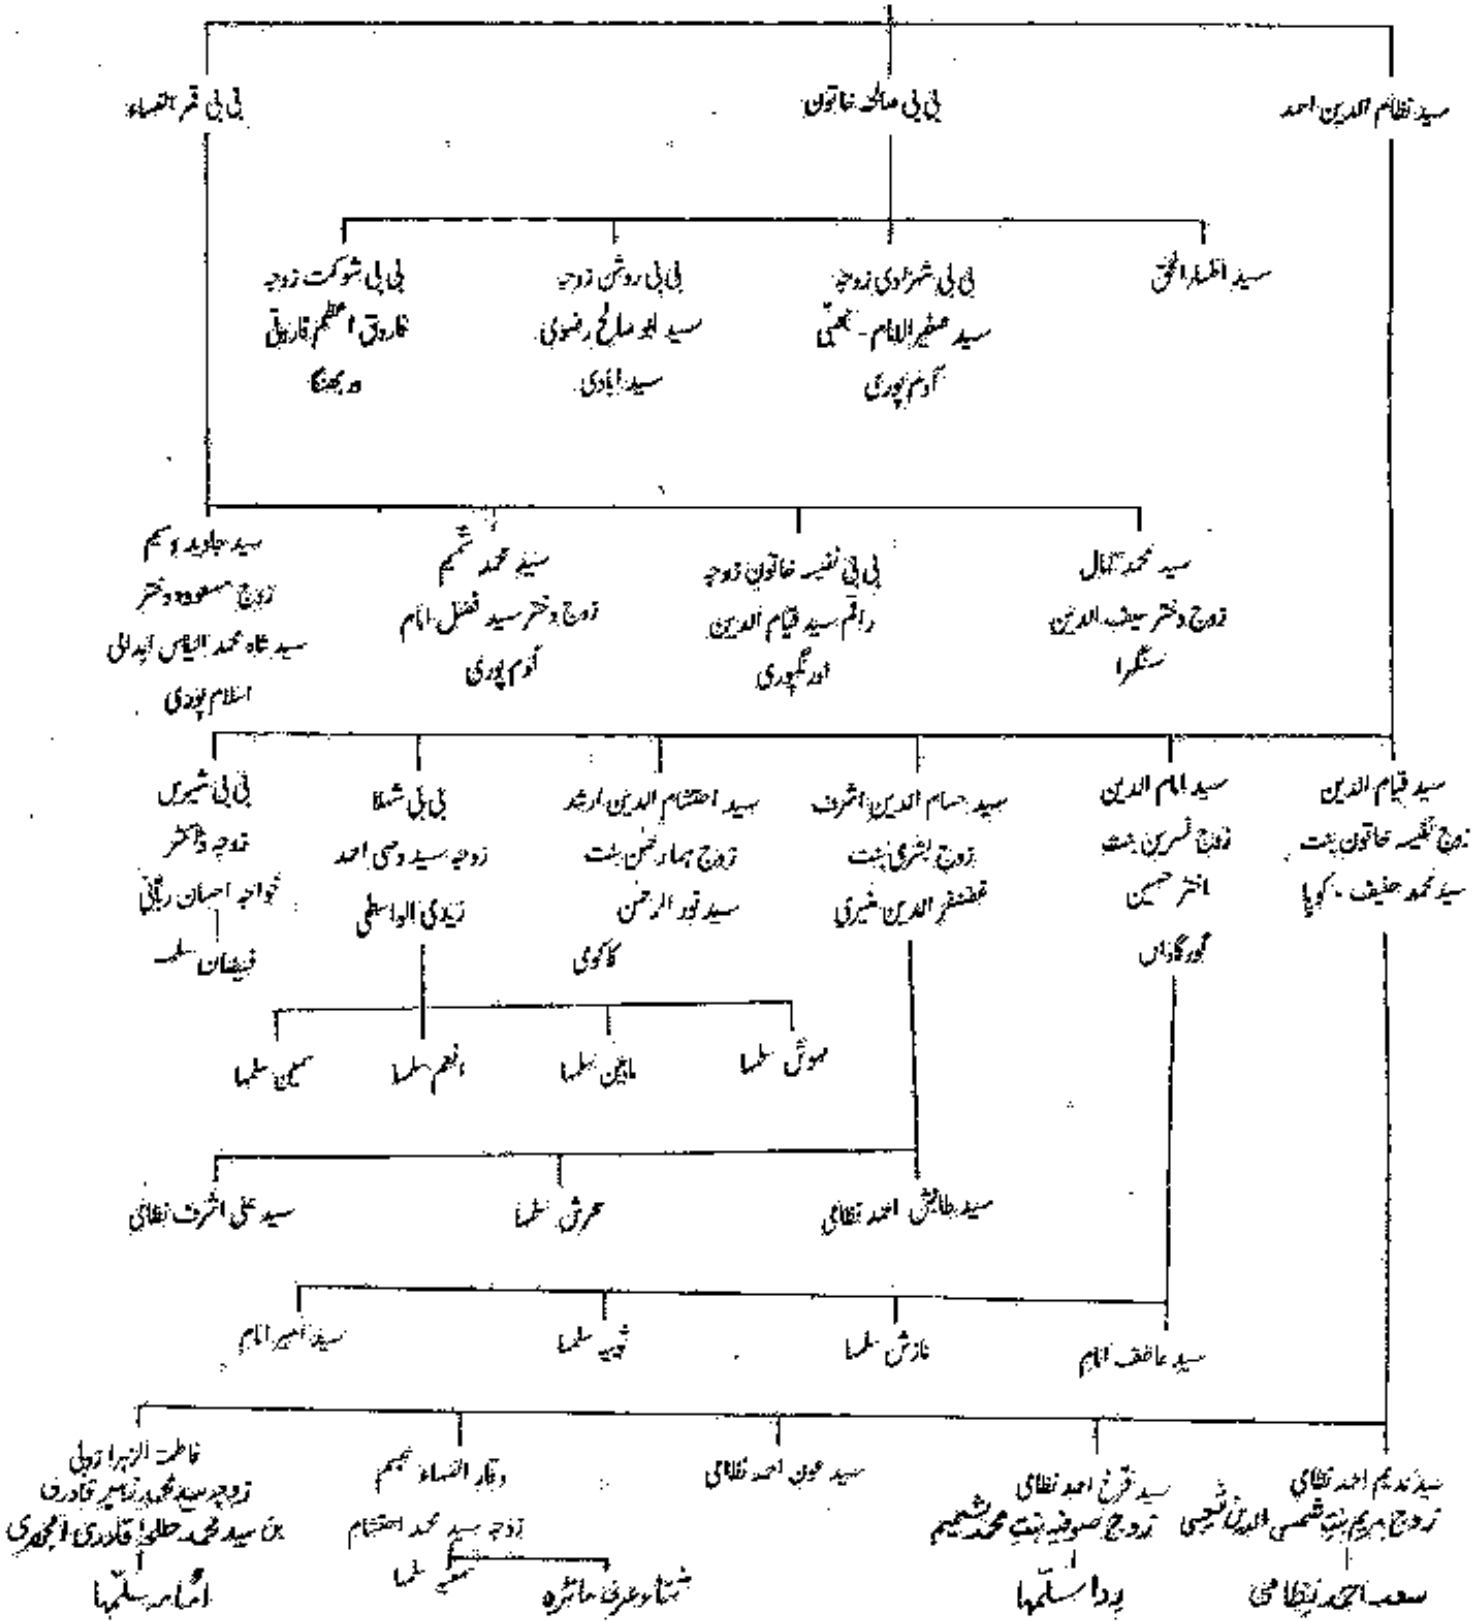 سید نظام الدین احمد
بی بی صالحہ خاتون
بی بی قمر النساء
سید اظہار الحق
بی بی شہزادی زوجہ
سید صغیر الامام
آدم پوری
بی بی روشن زوجہ
سید ابو صالح رضوی
سید ابادی
بی بی شوکت زوجہ
فاروق اعظم فاروقی
دربھنگا
سید محمد جمال
زوج دختر سیف الدین
سنگرا
بی بی نفیسہ خاتون زوجہ
راقم سید قیام الدین
اورنگپوری
سید محمد شمیم
زوج دختر سید فضل امام
آدم پوری
سید جاوید وسیم
زوج مسعودہ دختر
سید شاہ محمد الیاس ابدالی
اسلام پوری
سید قیام الدین
زوج نفیسہ خاتون بنت
سید محمد حنیف - کوپا
سید امام الدین
زوج نسرین بنت
اختر حسین
گورگاواں
سید حسام الدین اشرف
زوج بشری بنت
غضنفر الدین منیری
سید احتشام الدین ارشد
زوج بہار حسن بنت
سید نور الرحمن
کاکوی
بی بی شہلا
زوجہ سید وصی احمد
زیدی الواسطی
بی بی شیریں
زوجہ ڈاکٹر
خواجہ احسان ربانی
فیضان سلمہ
مہوش سلمہا
ماہین سلمہا
انعم سلمہا
سمین سلمہا
سید دانش احمد نظامی
سحرش سلمہا
سید علی اشرف نظامی
سید عاطف امام
نازش سلمہا
ثوبیہ سلمہا
سید امیر امام
سید ندیم احمد نظامی
زوج مریم بنت شمسی الدین شمسی
سعد احمد نظامی
سید فرخ احمد نظامی
زوج صوفیہ بنت محمد شمیم
ردا سلمہا
سید عون احمد نظامی
وقار النساء
زوجہ سید محمد احتشام
سمیہ سلمہا
ثناء عرف مائرہ
فاطمۃ الزہرا روبی
زوجہ سید محمد زبیر قادری
بن سید محمد طلحہ قادری امجھری
امامہ سلمہا